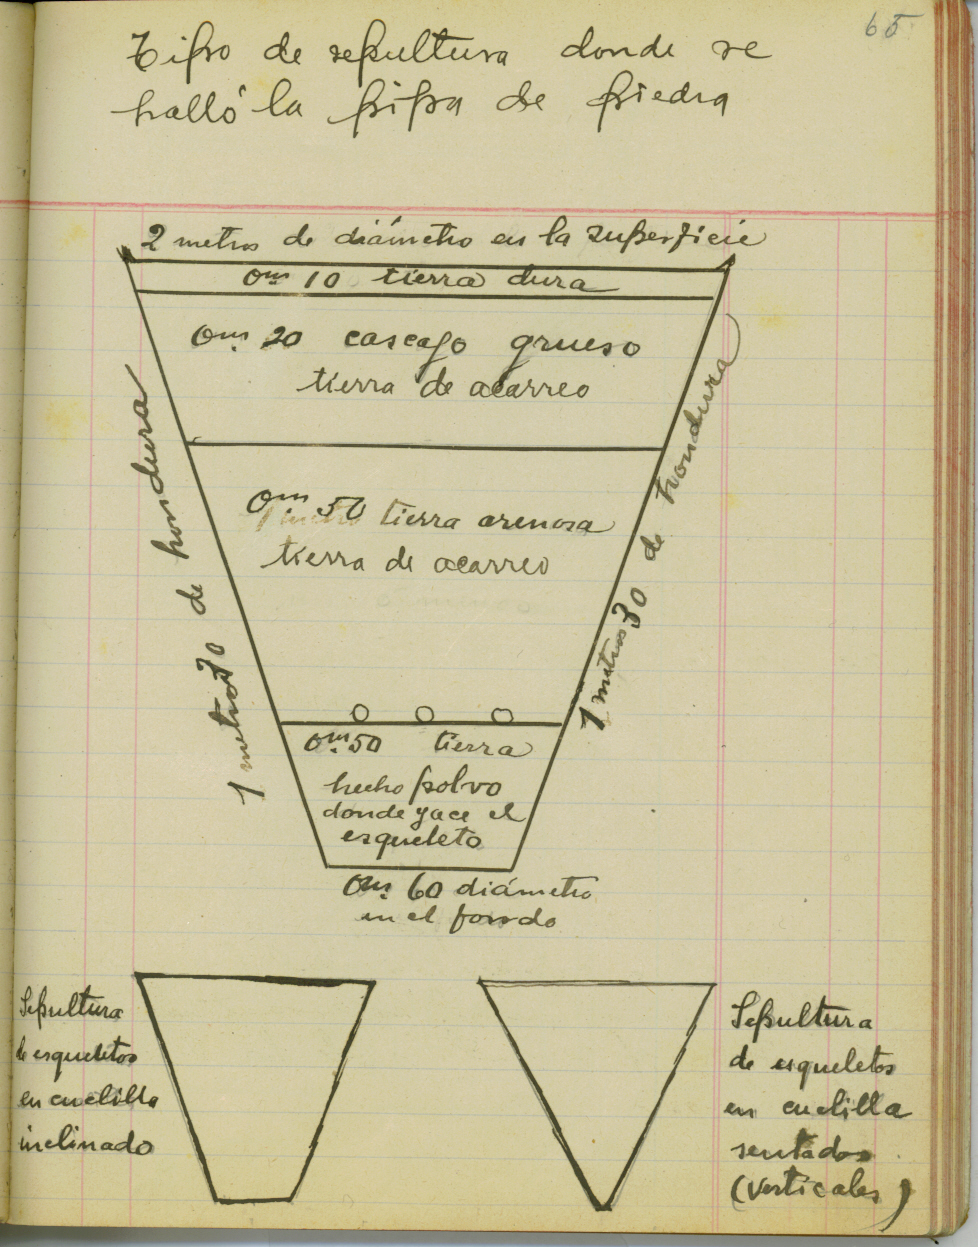 65
Tipo de sepultura donde se
halló la pipa de piedra
2 metros de diámetro en la superficie
0m. 10 tierra dura
0m. 20 cascajo grueso
tierra de acarreo
0m. 50 tierra arenosa
tierra de acarreo
1 metro 30 de hondura
1 metros 30 de hondura
0m. 50 tierra
hecho polvo
donde yace el
esqueleto
0m. 60 diámetro
en el fondo
Sepultura
de esqueletos
en cuclilla
inclinado
Sepultura
de esqueletos
en cuclilla
sentados
(verticales)